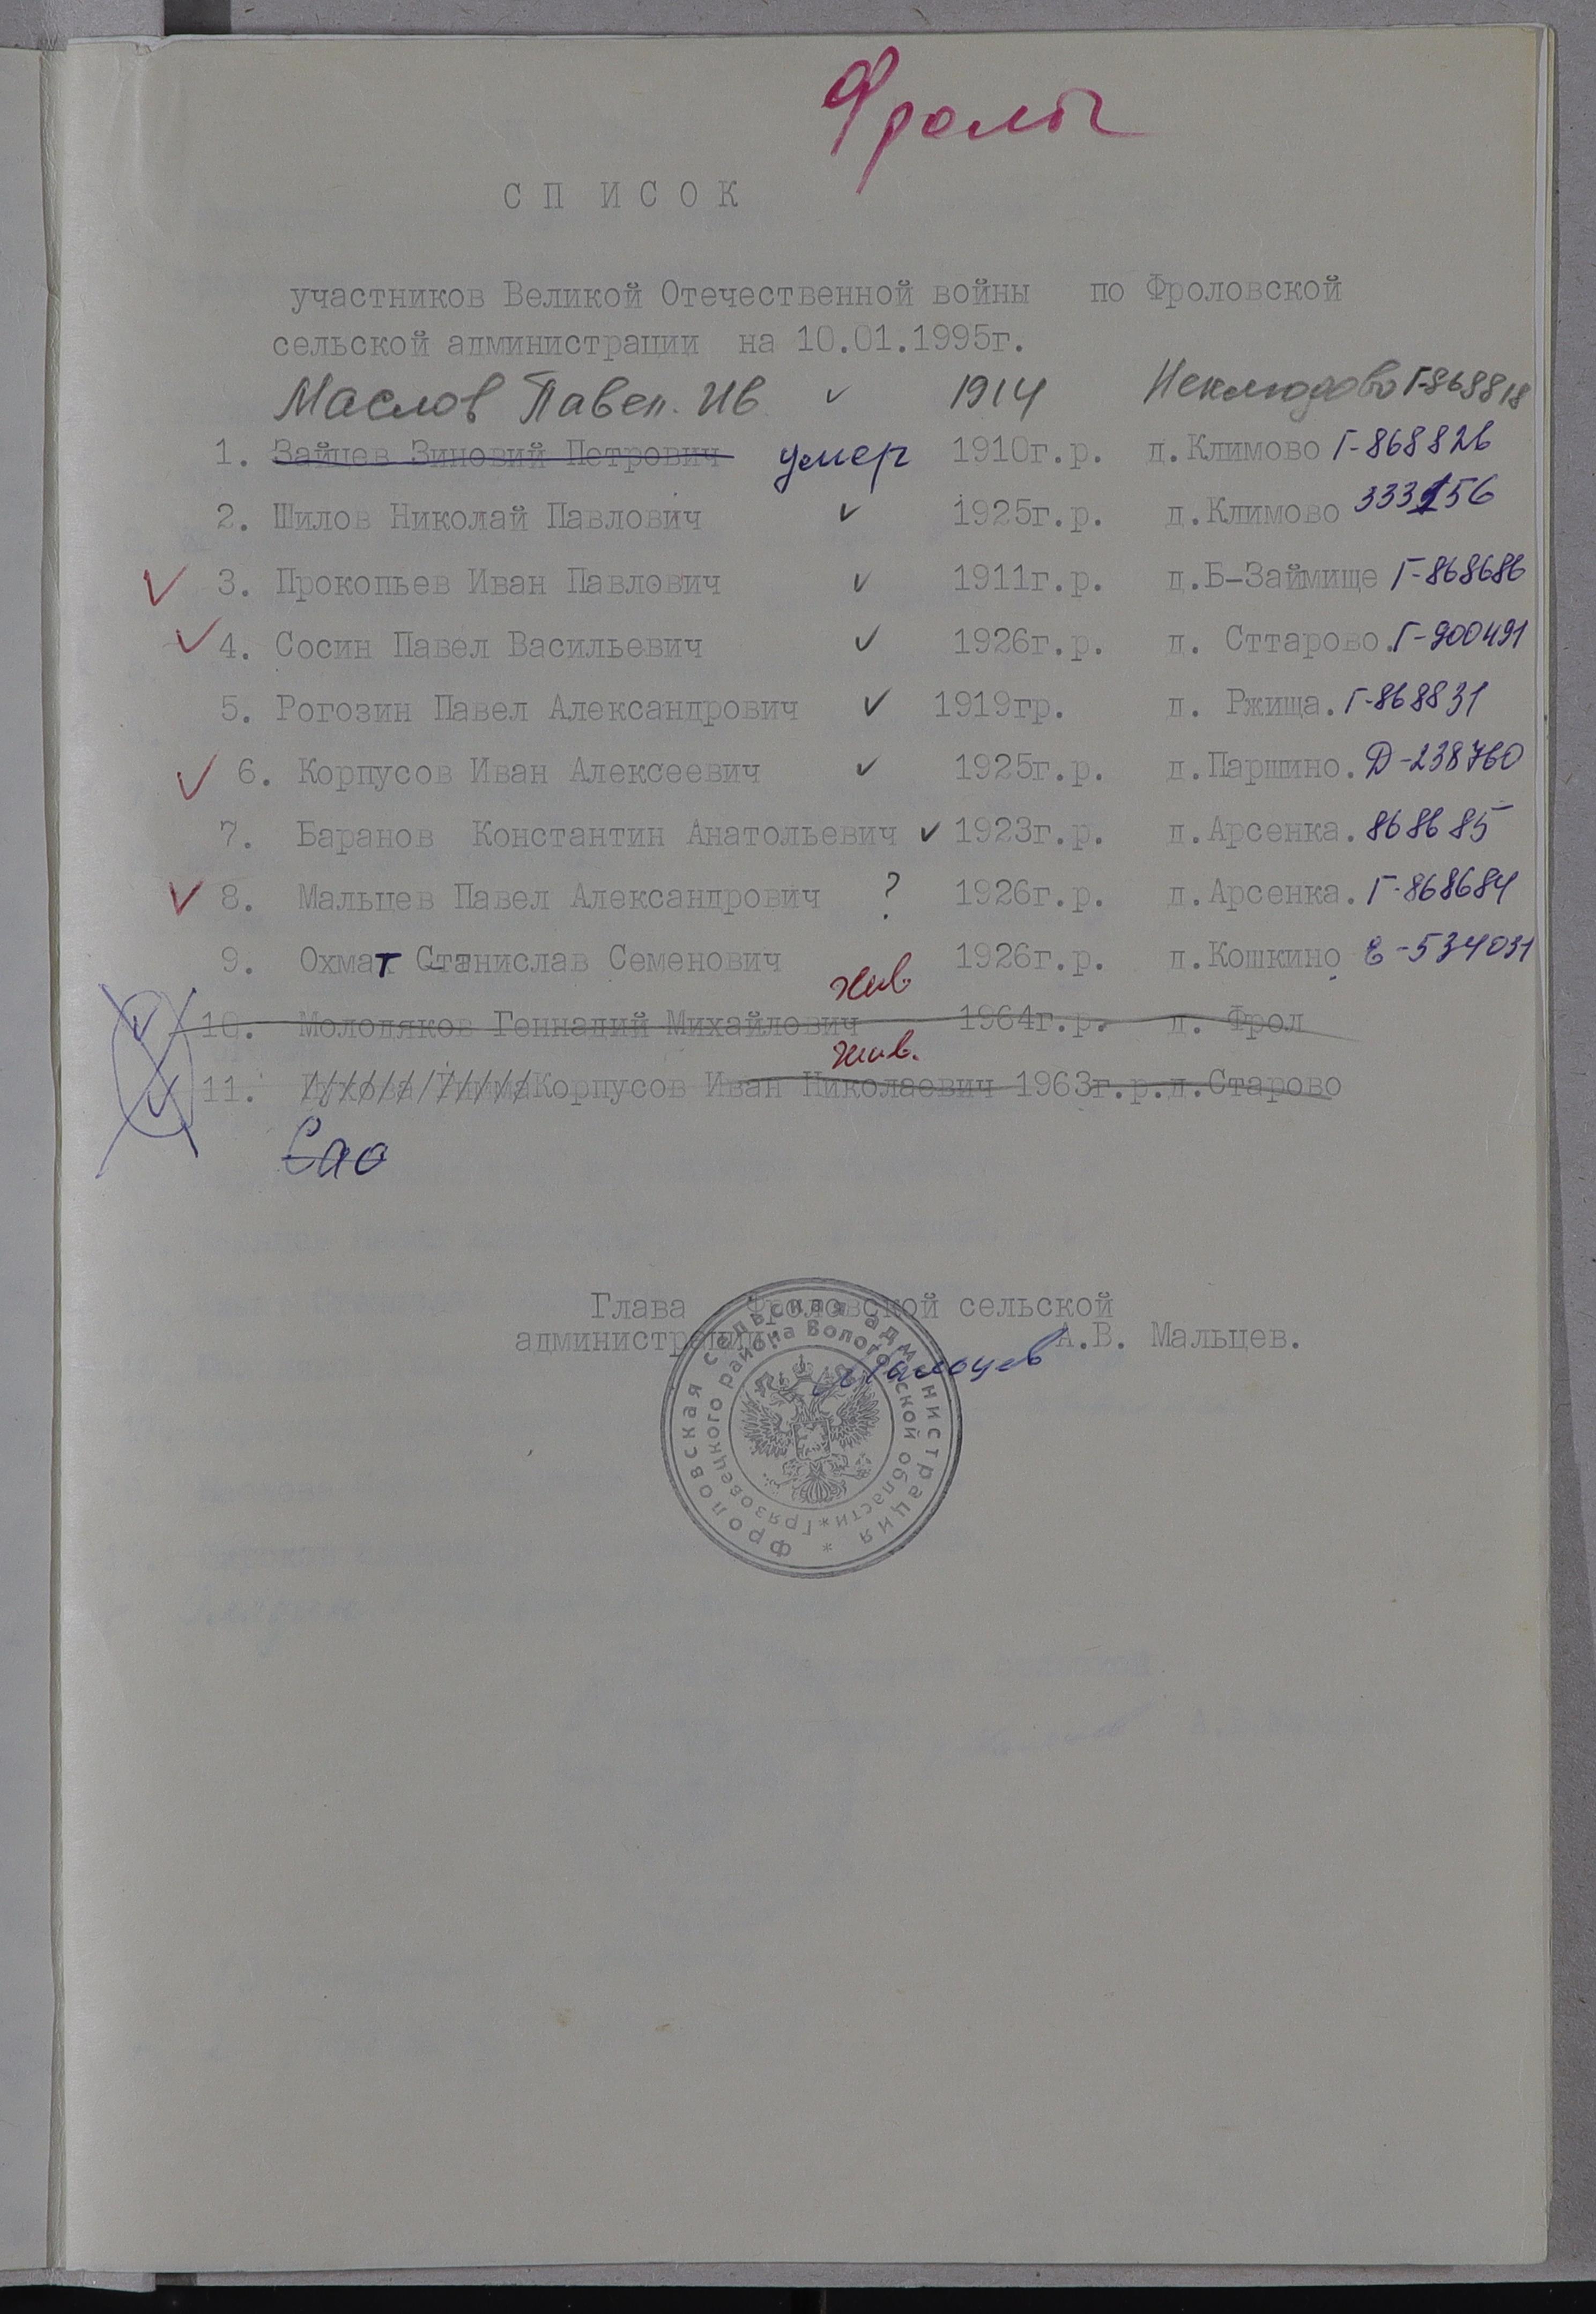 Фролы
С П И С О К
участников Великой Отечественной войны по Фроловской
сельской администрации на 10.01.1995г.
Маслов Павел. Ив ✓ 1914 Неклюдово Г-868818
1. Зайцев Зиновий Петрович умер 1910г.р. д.Климово Г-868826
2. Шилов Николай Павлович ✓ 1925г.р. д.Климово 333156
✓ 3. Прокопьев Иван Павлович ✓ 1911г.р. д.Б-Займище Г-868686
✓ 4. Сосин Павел Васильевич ✓ 1926г.р. д. Сттарово. Г-900491
5. Рогозин Павел Александрович ✓ 1919гр. д. Ржища. Г-868831
✓ 6. Корпусов Иван Алексеевич ✓ 1925г.р. д.Паршино. Д-238760
7. Баранов Константин Анатольевич ✓ 1923г.р. д.Арсенка. 868685
✓ 8. Мальцев Павел Александрович ? 1926г.р. д.Арсенка. Г-868684
9. Охмат Станислав Семенович 1926г.р. д.Кошкино Е-534031
жив.
10. Молодяков Геннадий Михайлович 1964г.р. д. Фрол
жив.
11. Корпусов Иван Николаевич 1963г.р.д.Старово
Глава Фроловской сельской
администрации А.В. Мальцев.
Мальцев
Фроловская сельская администрация *
Грязовецкого района Вологодской области *